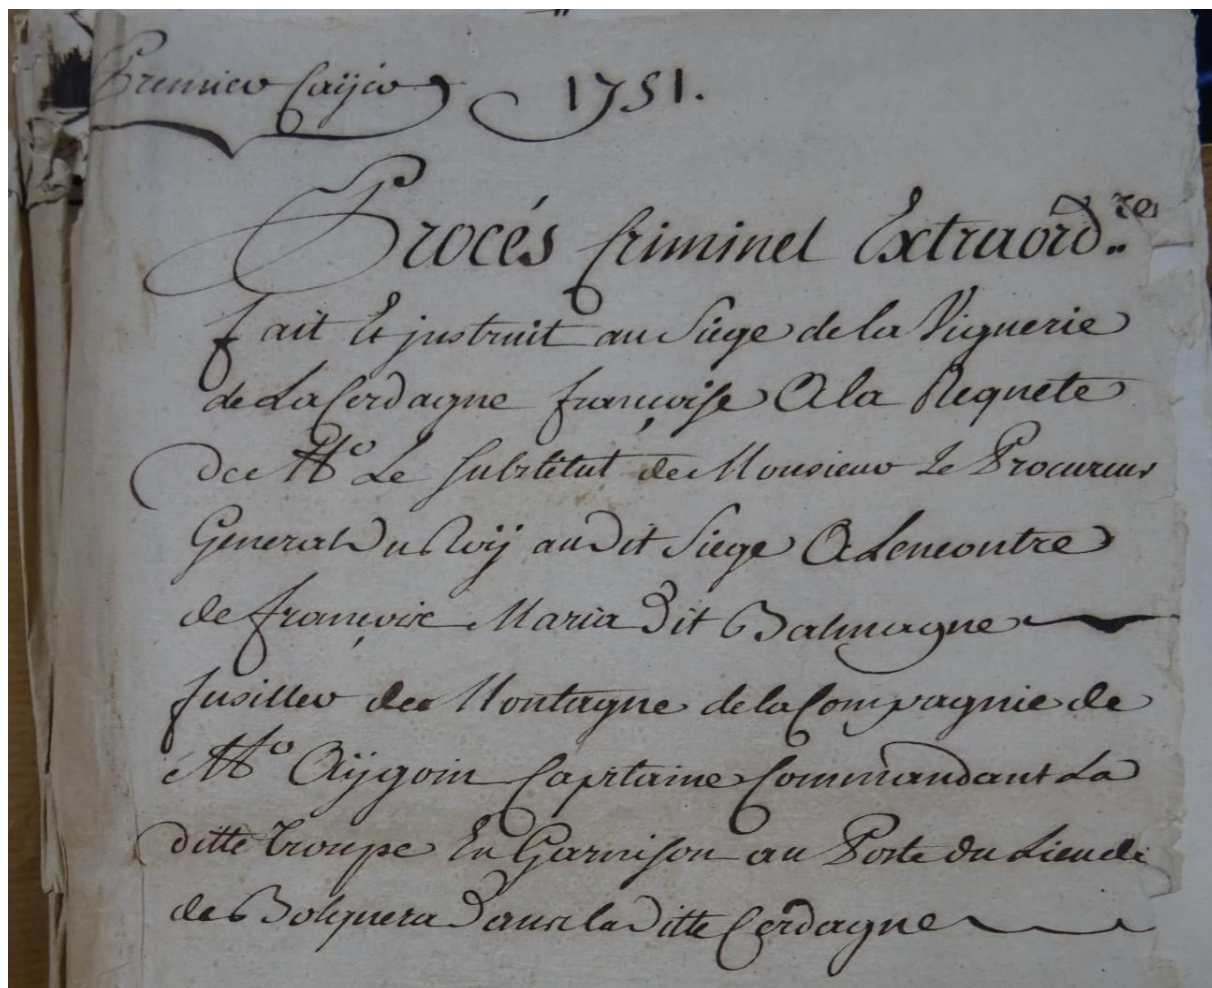 Premier Caÿer 1751.
Procés Criminel Extraord.re
fait Et jnstruit au Siege de la Viguerie
de La Cerdagne françoise A la Requete
de Mr Le Substitut de Monsieur Le Procureur
General Du Roÿ au Dit Siege A Lencontre
de françois Maria Dit Balmagne
fusillier de Montagne de la Compagnie de
Mr Aÿgoin Capitaine Commandant La
ditte troupe En Garnison au Poste du Lieu de
de Bolquera Dans la Ditte Cerdagne